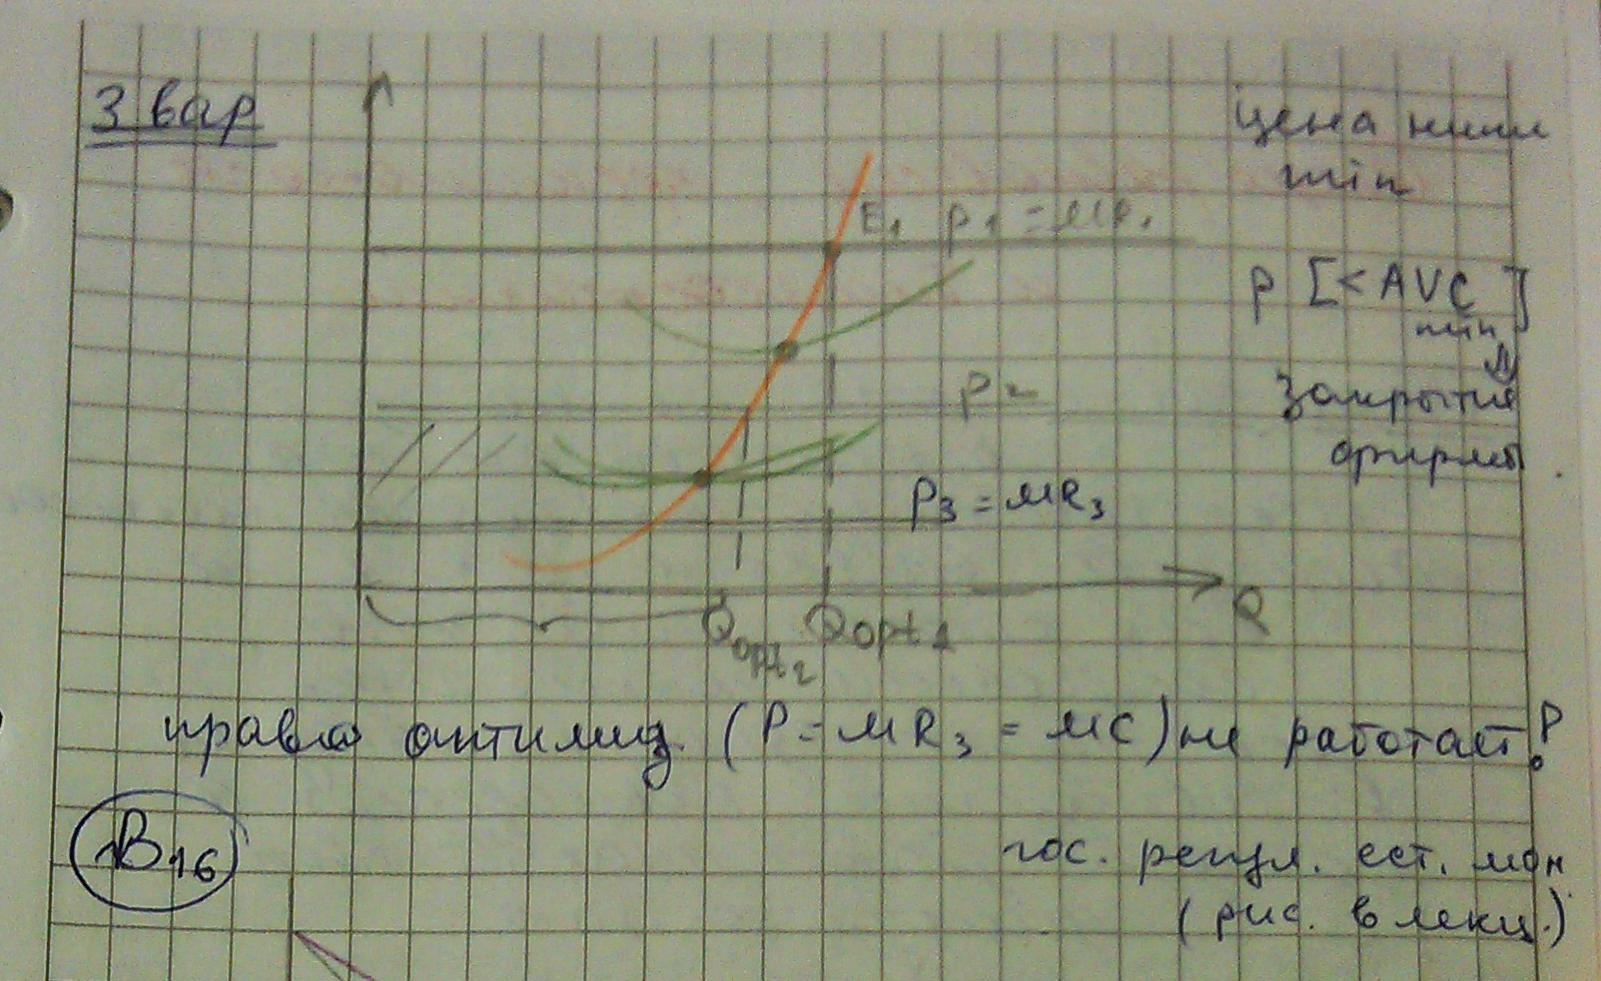 3 вар
цена ниж
min
E₁ P₁ = MR₁
P [< AVC min]
P₂
закрытие
фирмы
P₃ = MR₃
Qopt₂ Qopt1 Q
правло оптимиз. (P = MR₃ = MC) не работает!
В16
гос. регул. ест. мон
(рис. в лекц.)